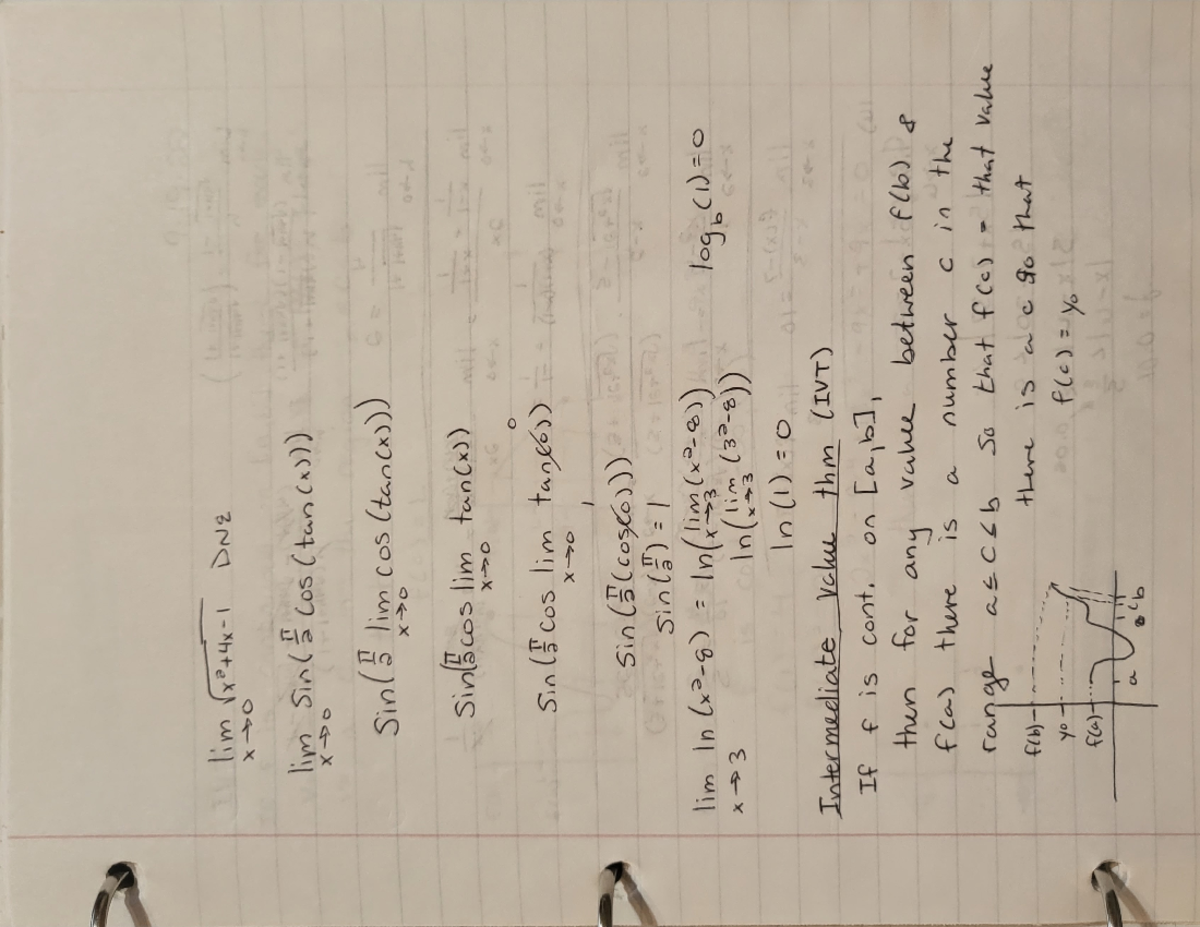 lim √(x²+4x-1) DNE
x→0
lim Sin(π/2 cos(tan(x)))
x→0
Sin(π/2 lim cos(tan(x)))
x→0
Sin(π/2 cos lim tan(x))
x→0
Sin(π/2 cos lim tan(0)) 0
x→0
Sin(π/2(cos(0))) 1
Sin(π/2) = 1
lim ln(x²-8) = ln(lim(x²-8)) log_b(1)=0
x→3 x→3
ln(lim(3²-8))
x→3
ln(1)=0
Intermediate value thm (IVT)
If f is cont. on [a,b],
then for any value between f(b) &
f(a) there is a number c in the
range a≤c≤b so that f(c) = that value
there is a c so that
f(c) = y₀
f(b)
y₀
f(a)
a c b